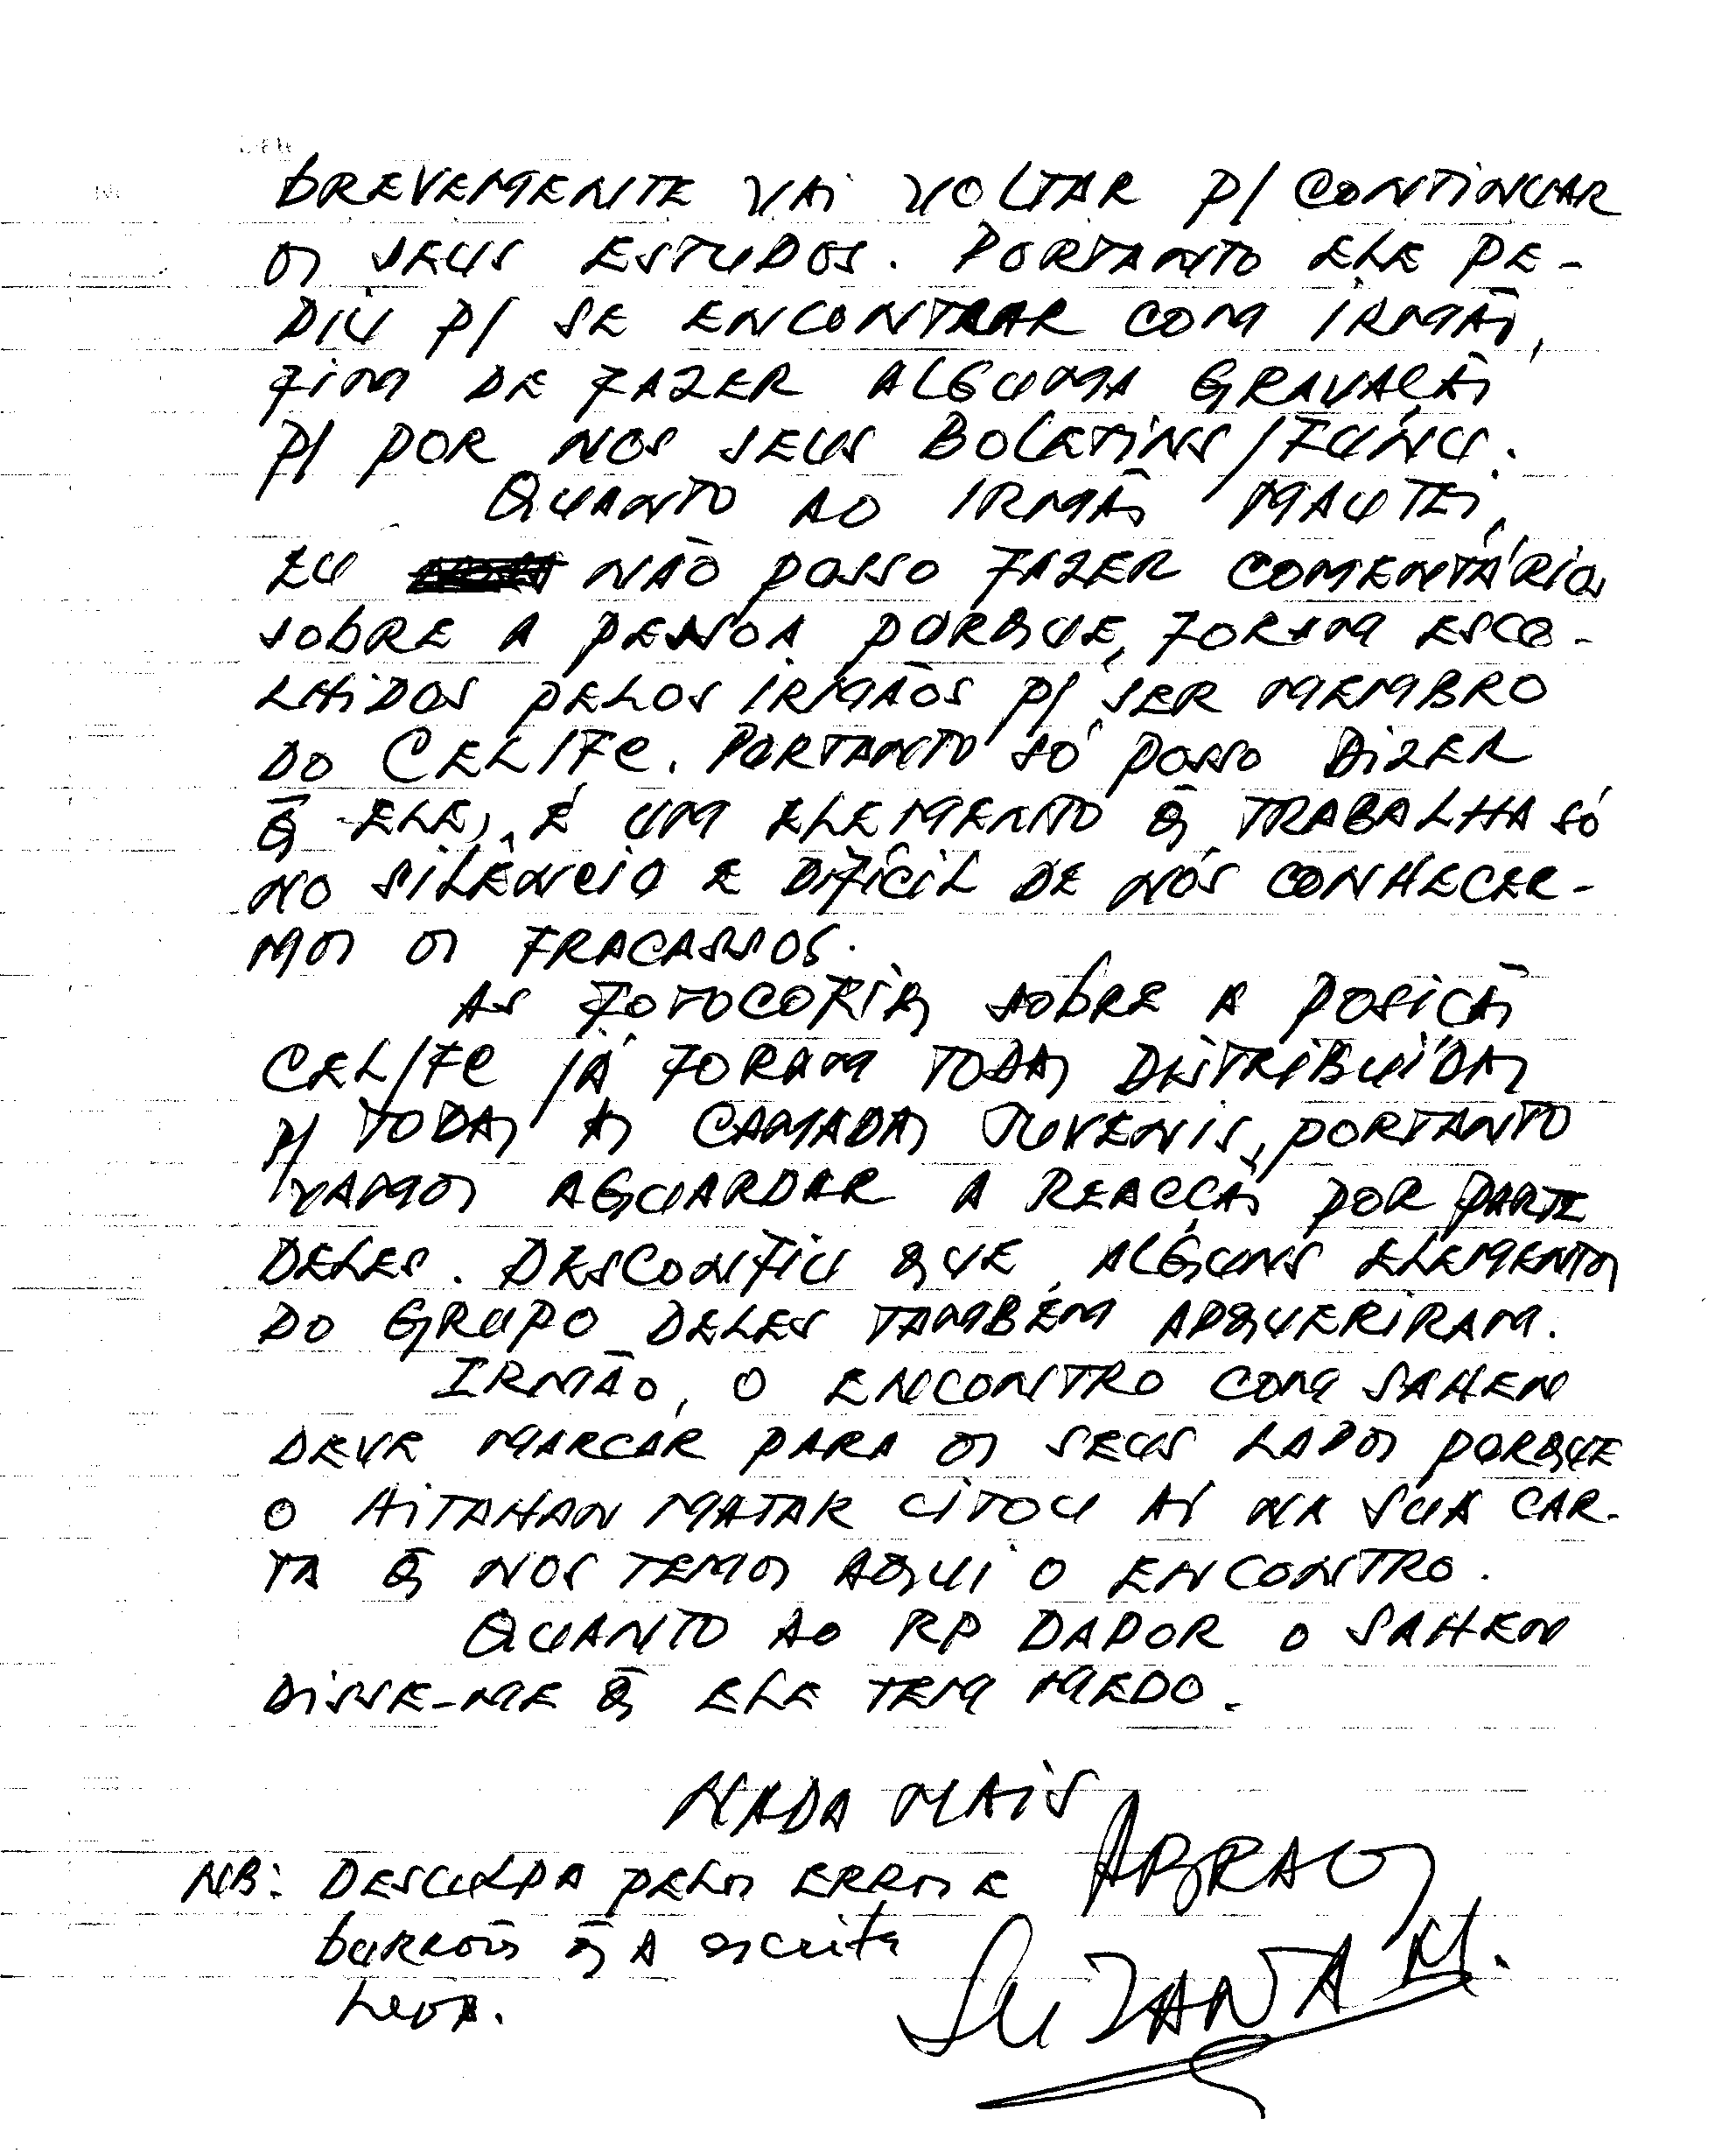 BREVEMENTE VAI VOLTAR P/ CONTINUAR
OS SEUS ESTUDOS. PORTANTO ELE PE-
DIU P/ SE ENCONTRAR COM IRMÃO,
FIM DE FAZER ALGUMA GRAVAÇÃO
P/ POR NOS SEUS BOLETINS/FUNU.
QUANTO AO IRMÃO MAUTEI,
EU NÃO POSSO FAZER COMENTÁRIOS
SOBRE A PESSOA PORQUE, FORAM ESCO-
LHIDOS PELOS IRMÃOS P/ SER MEMBRO
DO CEL/FC. PORTANTO SÓ POSSO DIZER
Q̄ ELE, É UM ELEMENTO Q̄ TRABALHA SÓ
NO SILÊNCIO E DIFÍCIL DE NÓS CONHECER-
MOS OS FRACASSOS.
AS FOTOCOPIAS SOBRE A POSIÇÃO
CEL/FC JÁ FORAM TODAS DISTRIBUÍDAS
P/ TODAS AS CAMADAS JUVENIS, PORTANTO
VAMOS AGUARDAR A REACÇÃO POR PARTE
DELES. DESCONFIU QUE, ALGUNS ELEMENTOS
DO GRUPO DELES TAMBÉM ADQUERIRAM.
IRMÃO, O ENCONTRO COM SAHEN
DEVE MARCAR PARA OS SEUS LADOS PORQUE
O AITAHAN MATAK CITOU AÍ NA SUA CAR-
TA Q̄ NOS TEMOS AQUI O ENCONTRO.
QUANTO AO RP DADOR O SAHEN
DISSE-ME Q̄ ELE TEM MEDO.
NADA MAIS
ABRAÇOS
NB: DESCULPA PELOS ERROS E
borrões q̄ A escrita
leva.
SUZANA M.